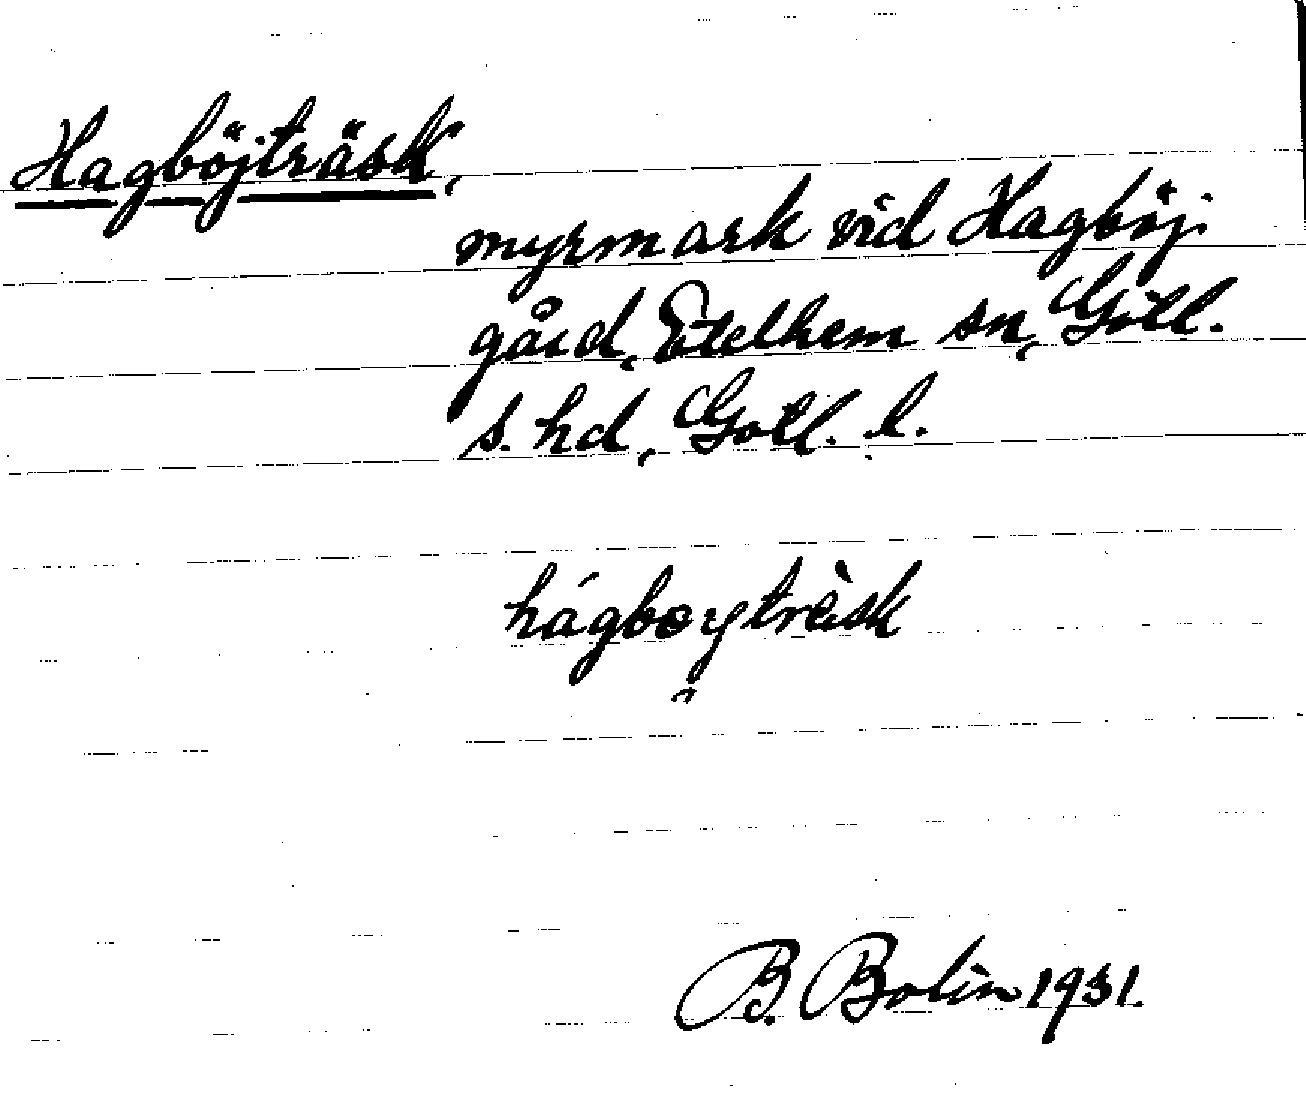 Hagböjträsk,
myrmark vid Hagböj
gård, Etelhem sn, Gotl.
s. hd, Gotl. l.
hágbǫytràsk
B. Bolin 1931.